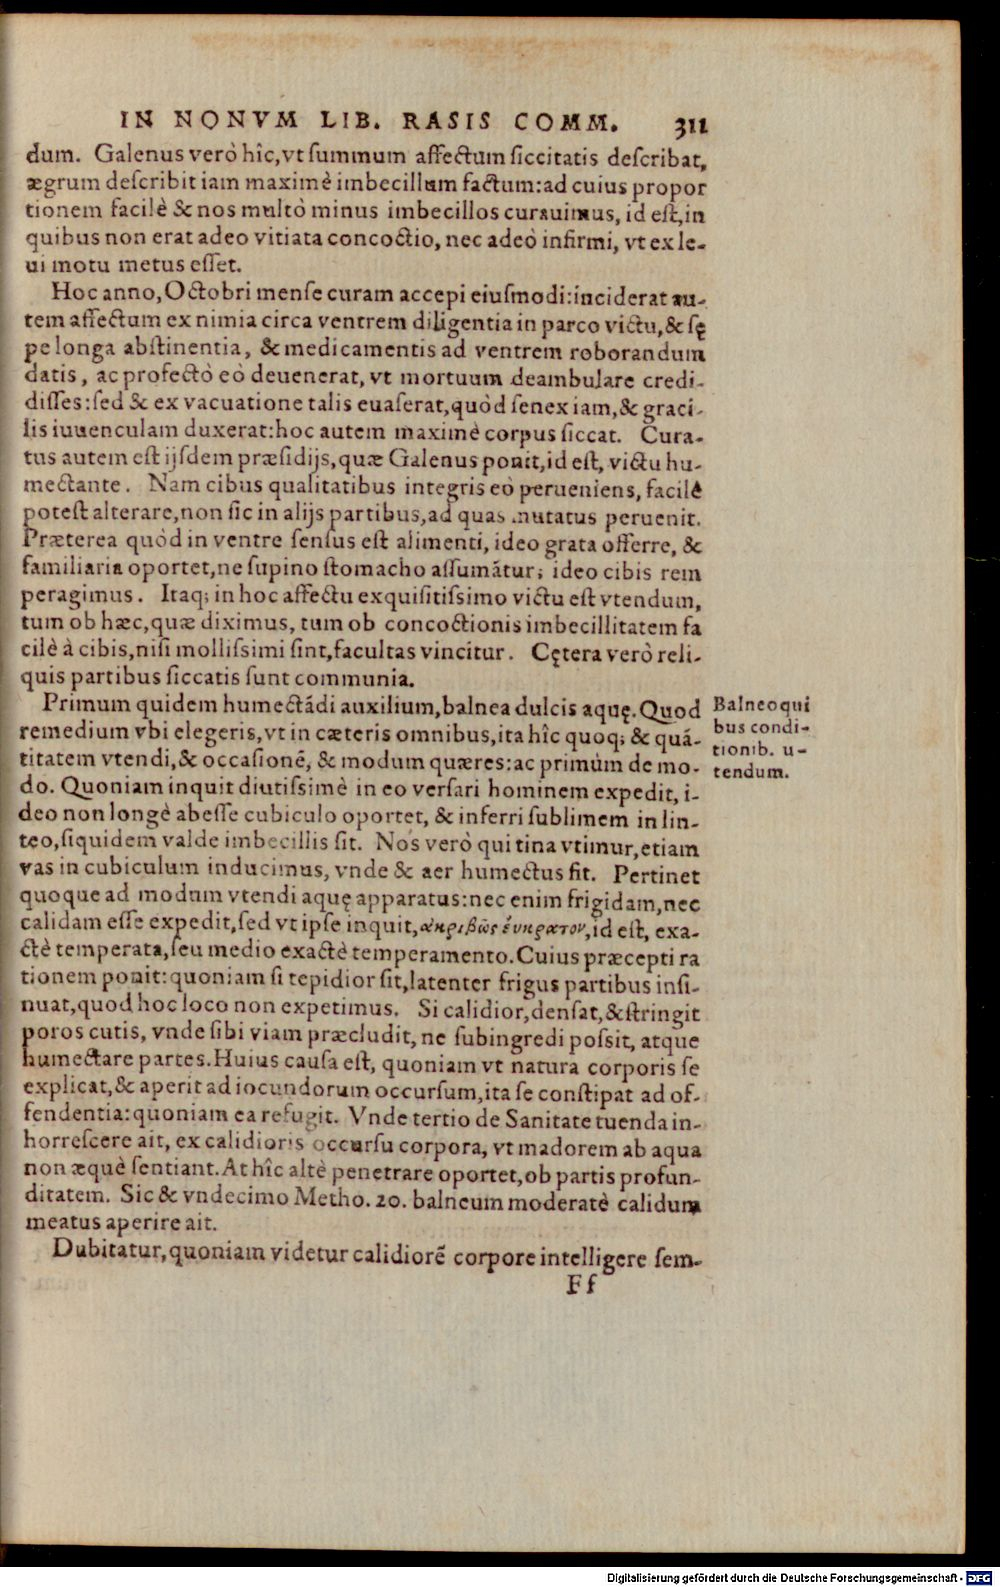 IN NONVM LIB. RASIS COMM. 311
dum. Galenus verò hîc, vt summum affectum siccitatis describat,
ægrum describit iam maximè imbecillum factum: ad cuius propor
tionem facilè & nos multò minus imbecillos curauimus, id est, in
quibus non erat adeo vitiata concoctio, nec adeò infirmi, vt ex le-
ui motu metus esset.
Hoc anno, Octobri mense curam accepi eiusmodi: inciderat au-
tem affectum ex nimia circa ventrem diligentia in parco victu, & sę
pe longa abstinentia, & medicamentis ad ventrem roborandum
datis, ac profectò eò deuenerat, vt mortuum deambulare credi-
disses: sed & ex vacuatione talis euaserat, quòd senex iam, & graci-
lis iuuenculam duxerat: hoc autem maximè corpus siccat. Cura-
tus autem est ijsdem præsidijs, quæ Galenus ponit, id est, victu hu-
mectante. Nam cibus qualitatibus integris eò perueniens, facilè
potest alterare, non sic in alijs partibus, ad quas mutatus peruenit.
Præterea quòd in ventre sensus est alimenti, ideo grata offerre, &
familiaria oportet, ne supino stomacho assumãtur; ideo cibis rem
peragimus. Itaq; in hoc affectu exquisitissimo victu est vtendum,
tum ob hæc, quæ diximus, tum ob concoctionis imbecillitatem fa
cilè à cibis, nisi mollissimi sint, facultas vincitur. Cętera verò reli-
quis partibus siccatis sunt communia.
Primum quidem humectãdi auxilium, balnea dulcis aquę. Quod
remedium vbi elegeris, vt in cæteris omnibus, ita hîc quoq; & quã-
titatem vtendi, & occasionẽ, & modum quæres: ac primùm de mo-
do. Quoniam inquit diutissimè in eo versari hominem expedit, i-
deo non longè abesse cubiculo oportet, & inferri sublimem in lin-
teo, siquidem valde imbecillis sit. Nos verò qui tina vtimur, etiam
vas in cubiculum inducimus, vnde & aer humectus fit. Pertinet
quoque ad modum vtendi aquę apparatus: nec enim frigidam, nec
calidam esse expedit, sed vt ipse inquit, ἀκριβῶς ἔυκρατον, id est, exa-
ctè temperata, seu medio exactè temperamento. Cuius præcepti ra
tionem ponit: quoniam si tepidior sit, latenter frigus partibus insi-
nuat, quod hoc loco non expetimus. Si calidior, densat, & stringit
poros cutis, vnde sibi viam præcludit, ne subingredi possit, atque
humectare partes. Huius causa est, quoniam vt natura corporis se
explicat, & aperit ad iocundorum occursum, ita se constipat ad of-
fendentia: quoniam ea refugit. Vnde tertio de Sanitate tuenda in-
horrescere ait, ex calidioris occursu corpora, vt madorem ab aqua
non æquè sentiant. At hîc altè penetrare oportet, ob partis profun-
ditatem. Sic & vndecimo Metho. 20. balneum moderatè calidum
meatus aperire ait.
Dubitatur, quoniam videtur calidiorẽ corpore intelligere sem-
Ff
Balneo qui
bus condi-
tionib. u-
tendum.
Digitalisierung gefördert durch die Deutsche Forschungsgemeinschaft - DFG